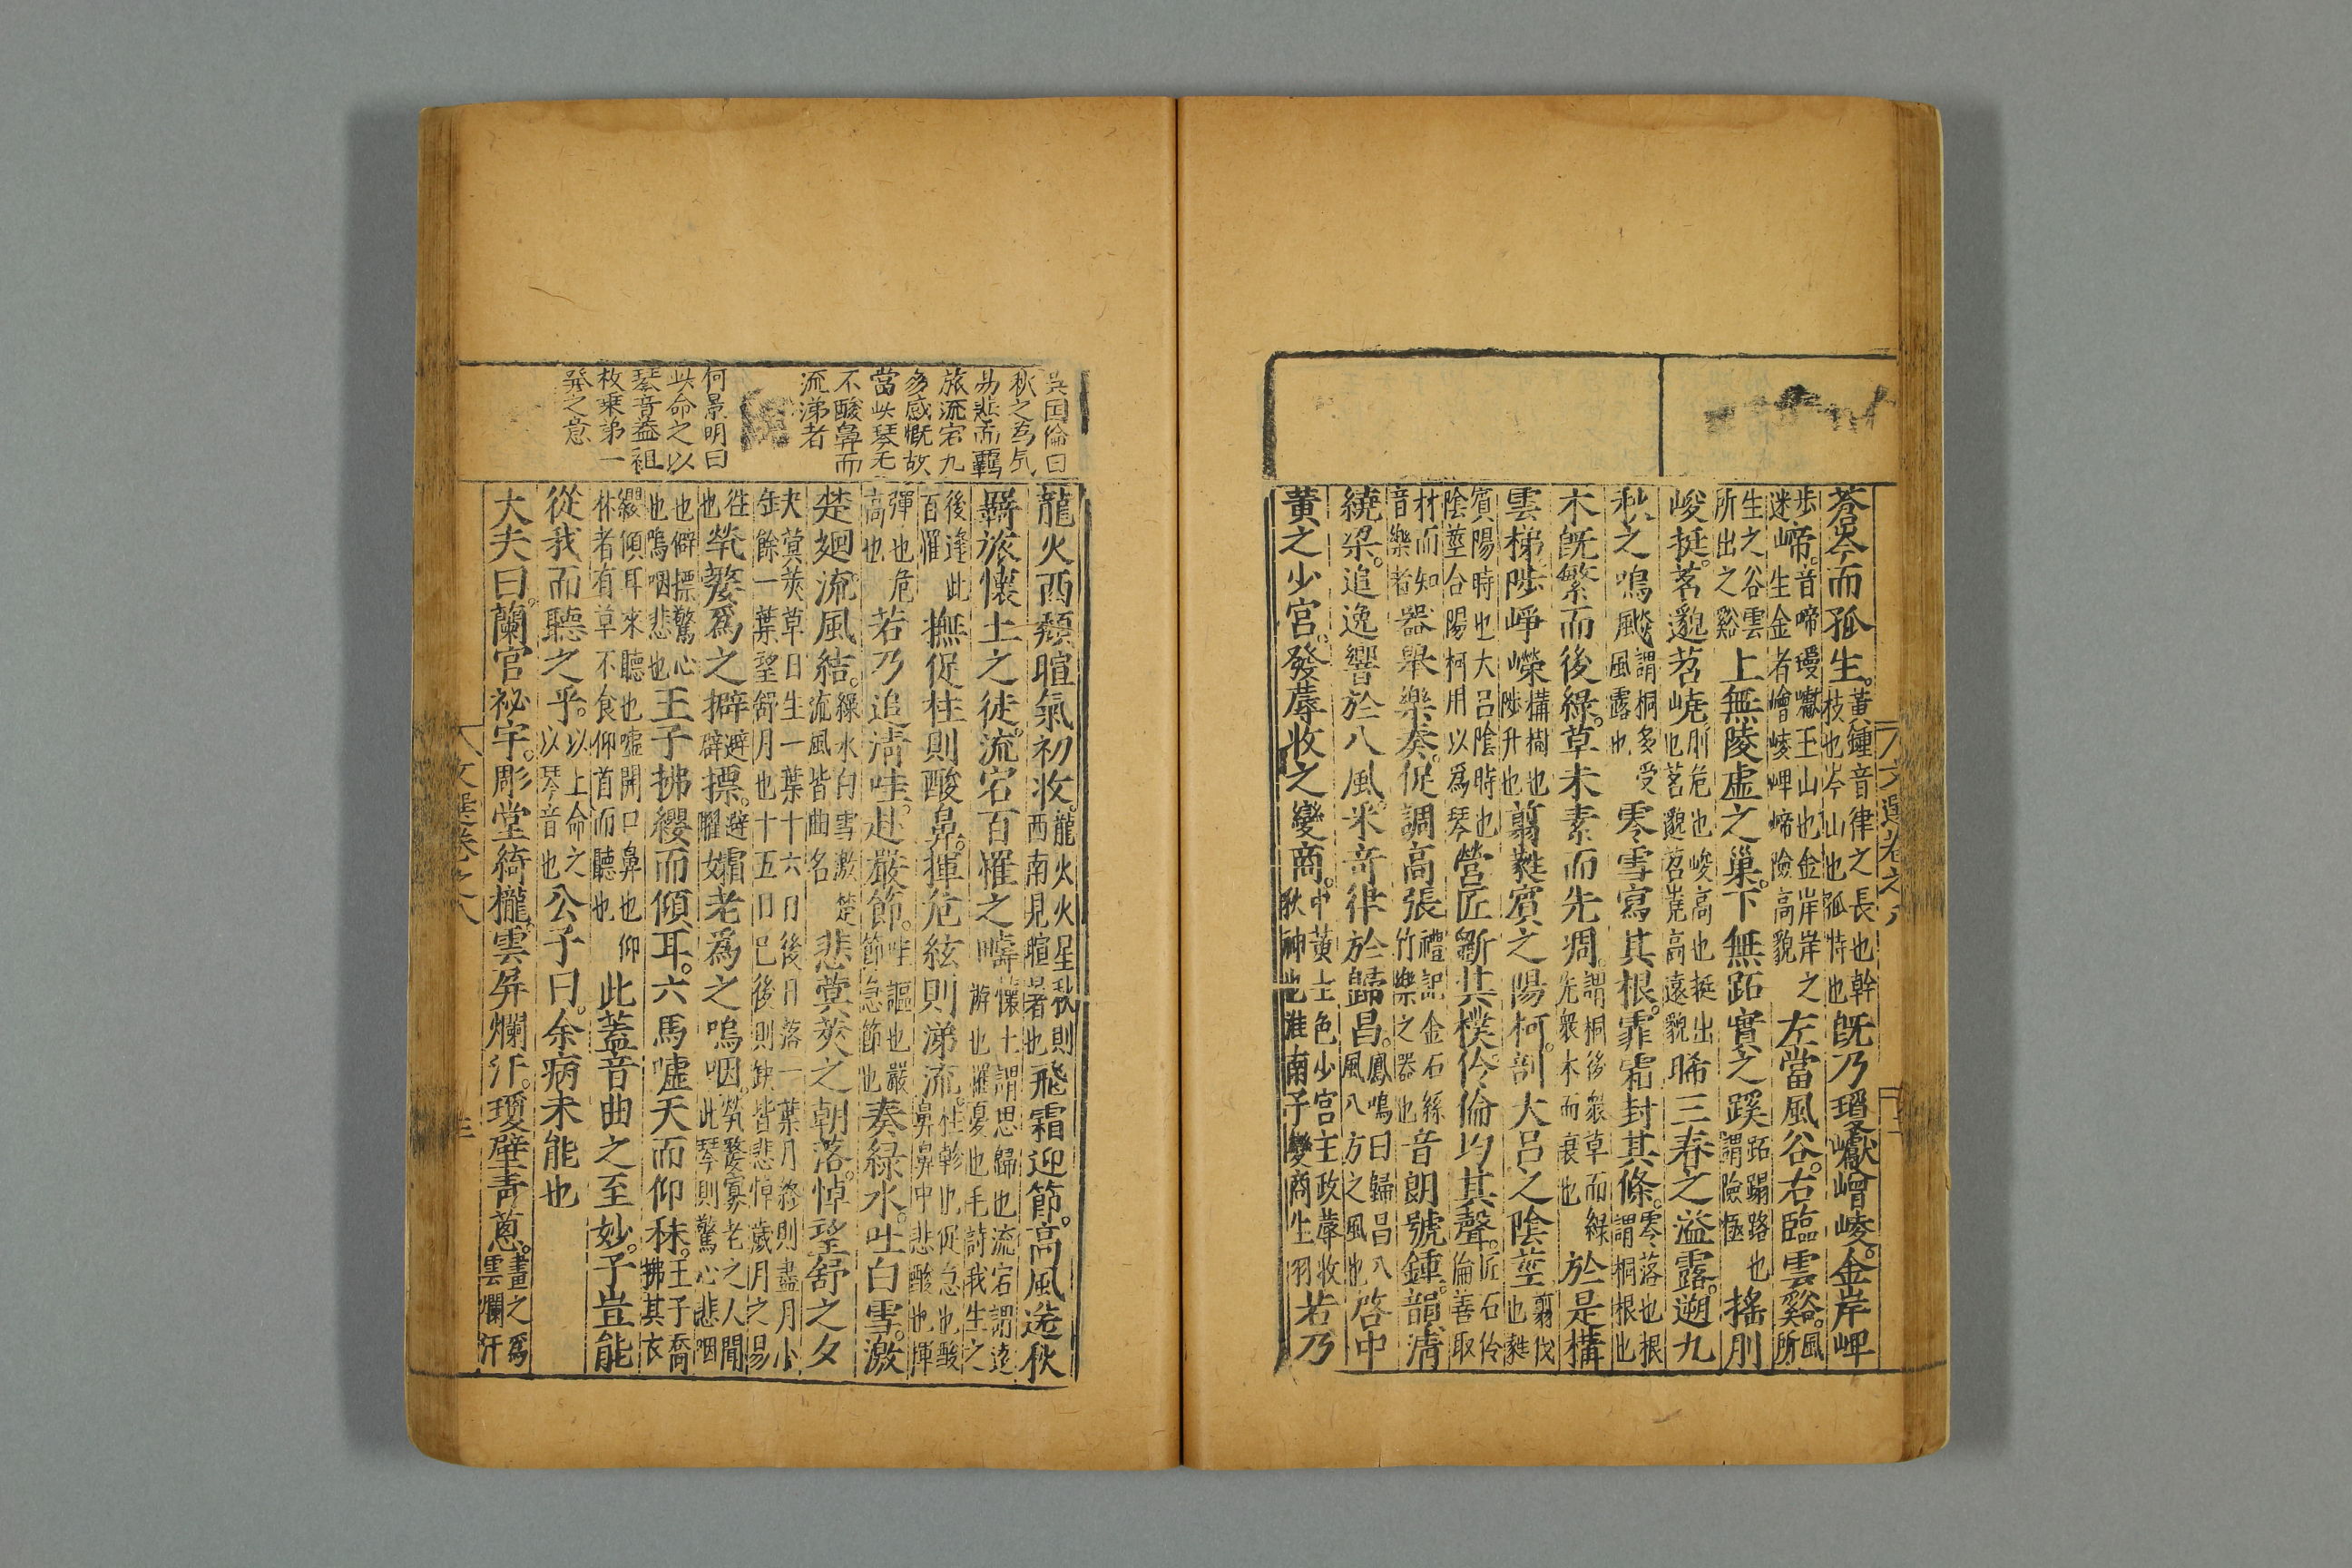 蒼岑而孤生。黃鍾音律之長也幹枝也岑山也孤特也既乃瓊巘嶒崚。金岸崥
步迷崹。音啼瓊巘玉山也金岸岸之生金者嶒崚崥崹險高貌左當風谷。右臨雲谿。風所
生之谷雲所出之谿上無陵虛之巢。下無跖實之蹊跖蹋路也謂險極搖刖
峻挺。茗邈苕嶢刖危也峻高也挺出也茗邈苕嶤高遠貌晞三春之溢露。遡九
秋之鳴飈謂桐多受風露也零雪寫其根。霏霜封其條。零落也根謂桐根也
木旣繁而後綠。草未素而先凋。謂桐後衆草而綠先衆木而衰也於是構
雲梯。陟崢嶸構樹也陟升也翦蕤賓之陽柯。剖大呂之陰莖翦伐也蕤
賓陽時也大呂陰時也陰莖合陽柯用以爲琴營匠斵其樸伶倫均其聲。匠石伶倫善取
材而知音樂者器舉樂奏。促調高張禮記金石絲竹樂之器也音朗號鍾。韻清
繞梁。追逸響於八風。采奇律於歸昌。鳳鳴曰歸昌八風八方之風也啓中
黃之少宮。發蓐收之變商。中黃土色少宮主政蓐收秋神也淮南子變商生羽若乃
文選卷之八
吳国倫曰
秋之爲気
易悲而羈
旅流宕九
多感慨故
當此琴无
不酸鼻而
流涕者
何景明曰
此命之以
琴音蓋祖
枚乗弟一
發之意
龍火西頹暄氣初收。龍火火星秋則西南見暄暑也飛霜迎節。高風送秋
羈旅懷土之徒。流宕百罹之疇懷土謂思歸也流宕謂遠游也罹憂也毛詩我生之
後逢此百罹撫促柱則酸鼻。揮危絃則涕流。柱軫也促急也酸鼻鼻中悲酸也揮
彈也危高也若乃追淸哇。赴嚴節。哇謳也嚴節急節也奏綠水。吐白雪。激
楚廻。流風結。綠水白雪激楚流風皆曲名悲蓂莢之朝落。悼望舒之夕
夫蓂莢草日生一葉十六日後日落一葉月終則盡月小缶餘一葉望舒月也十五日已後則缺皆悲悼歲月之易
徃也煢嫠爲之擗避辟摽。避躍孀老爲之嗚咽。煢嫠寡老之人聞此琴則驚心悲咽
也僻摽驚心也嗚咽悲也王子拂纓而傾耳。六馬噓天而仰秣。王子喬拂其衣
纓傾耳來聽也噓開口鼻也仰秣者有草不食仰首而聽也此蓋音曲之至妙。子豈能
從我而聽之乎。以上命之以琴音也公子曰。余病未能也
大夫曰。蘭宮祕宇。彫堂綺櫳。雲屏爛汗。瓊壁靑蔥。畫之爲雲爛汗
文選卷之八